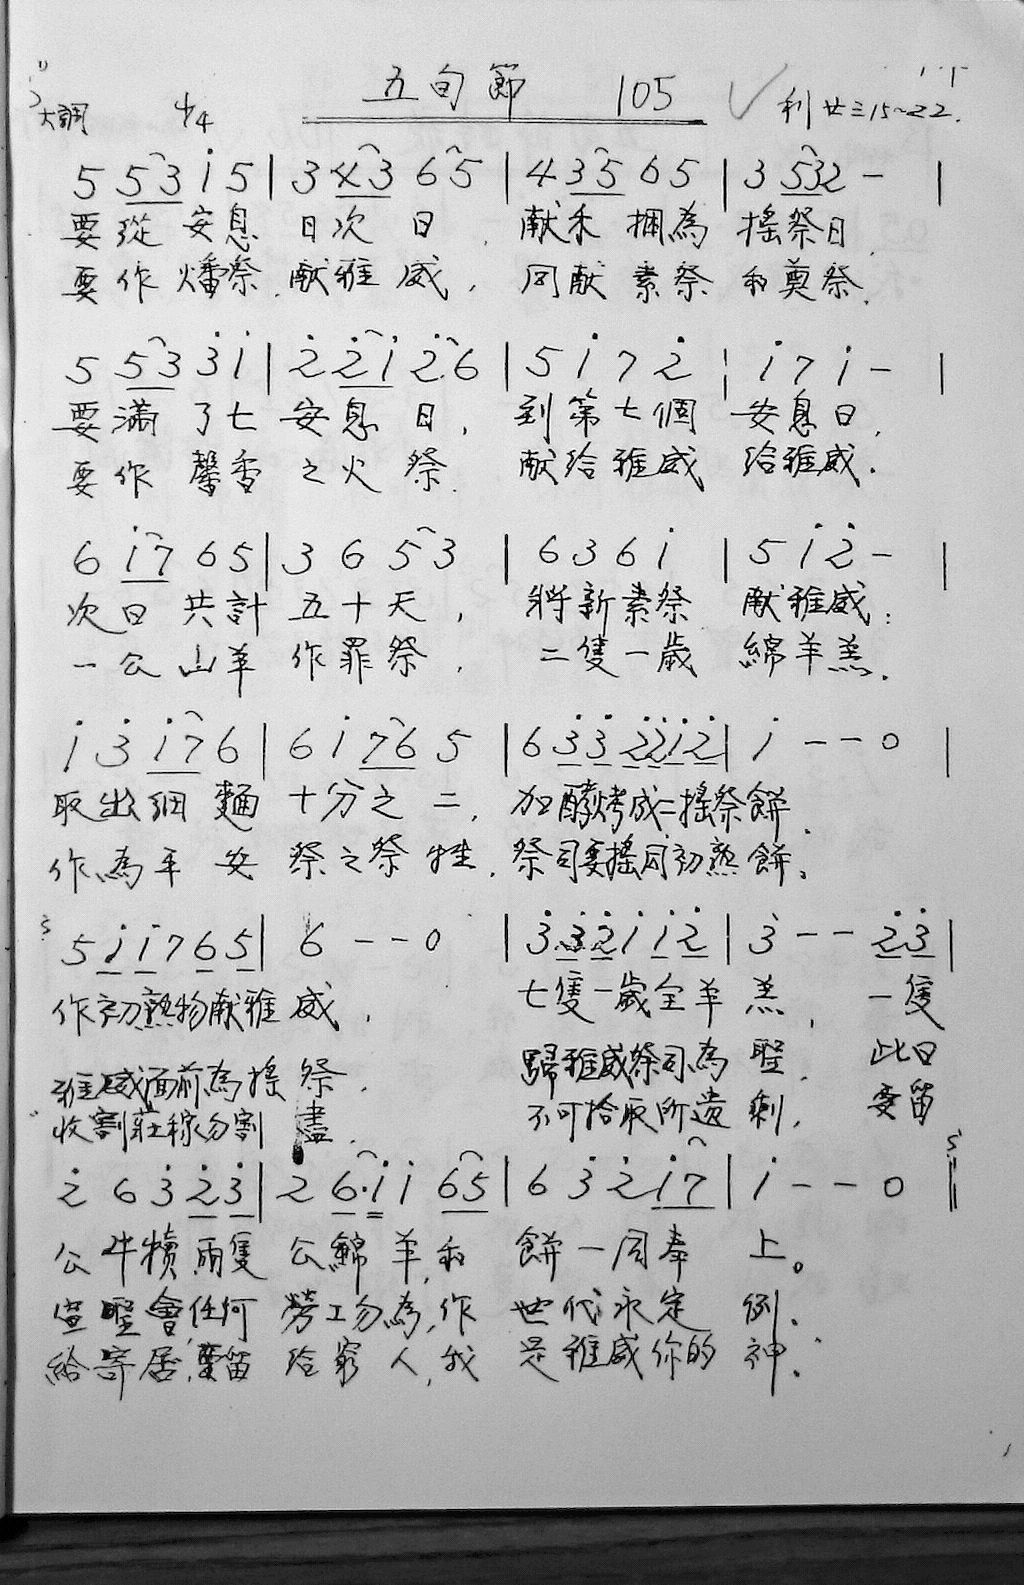 五旬節 105
大調 4/4 利廿三15~22.
5 53 i 5 | 3 43 65 | 4 35 65 | 3 532 - |
要從安息日次日,献禾捆為搖祭日,
要作燔祭献雅威,同献素祭和奠祭.
5 53 3i | 2 2i 26 | 5 i 7 2 | i 7 i - |
要滿了七安息日,到第七個安息日,
要作馨香之火祭.献給雅威給雅威.
6 i7 65 | 3 6 53 | 6 3 6 i | 5 i 2 - |
次日共計五十天,將新素祭献雅威.
一公山羊作罪祭,二隻一歲綿羊羔.
i 3 i7 6 | 6 i 76 5 | 6 33 22i2 | i - - 0 |
取出細麵十分之二,加酵烤成二搖祭餅.
作為平安祭之祭牲,祭司要搖同初熟餅.
5 i i 7 6 5 | 6 - - 0 | 3 3 2 i i 2 | 3 - - 23 |
作初熟物献雅威,七隻一歲全羊羔,一隻
雅威面前為搖祭.歸雅威祭司為聖.此日
收割莊稼勿割盡.不可拾取所遺剩,要留
2 6 3 2 3 | 2 6·i i 65 | 6 3 2 i7 | i - - 0 ||
公牛犢兩隻公綿羊,和餅一同奉上。
宣聖會任何勞工勿為,作世代永定例.
給寄居,要留給窮人,我是雅威你的神.